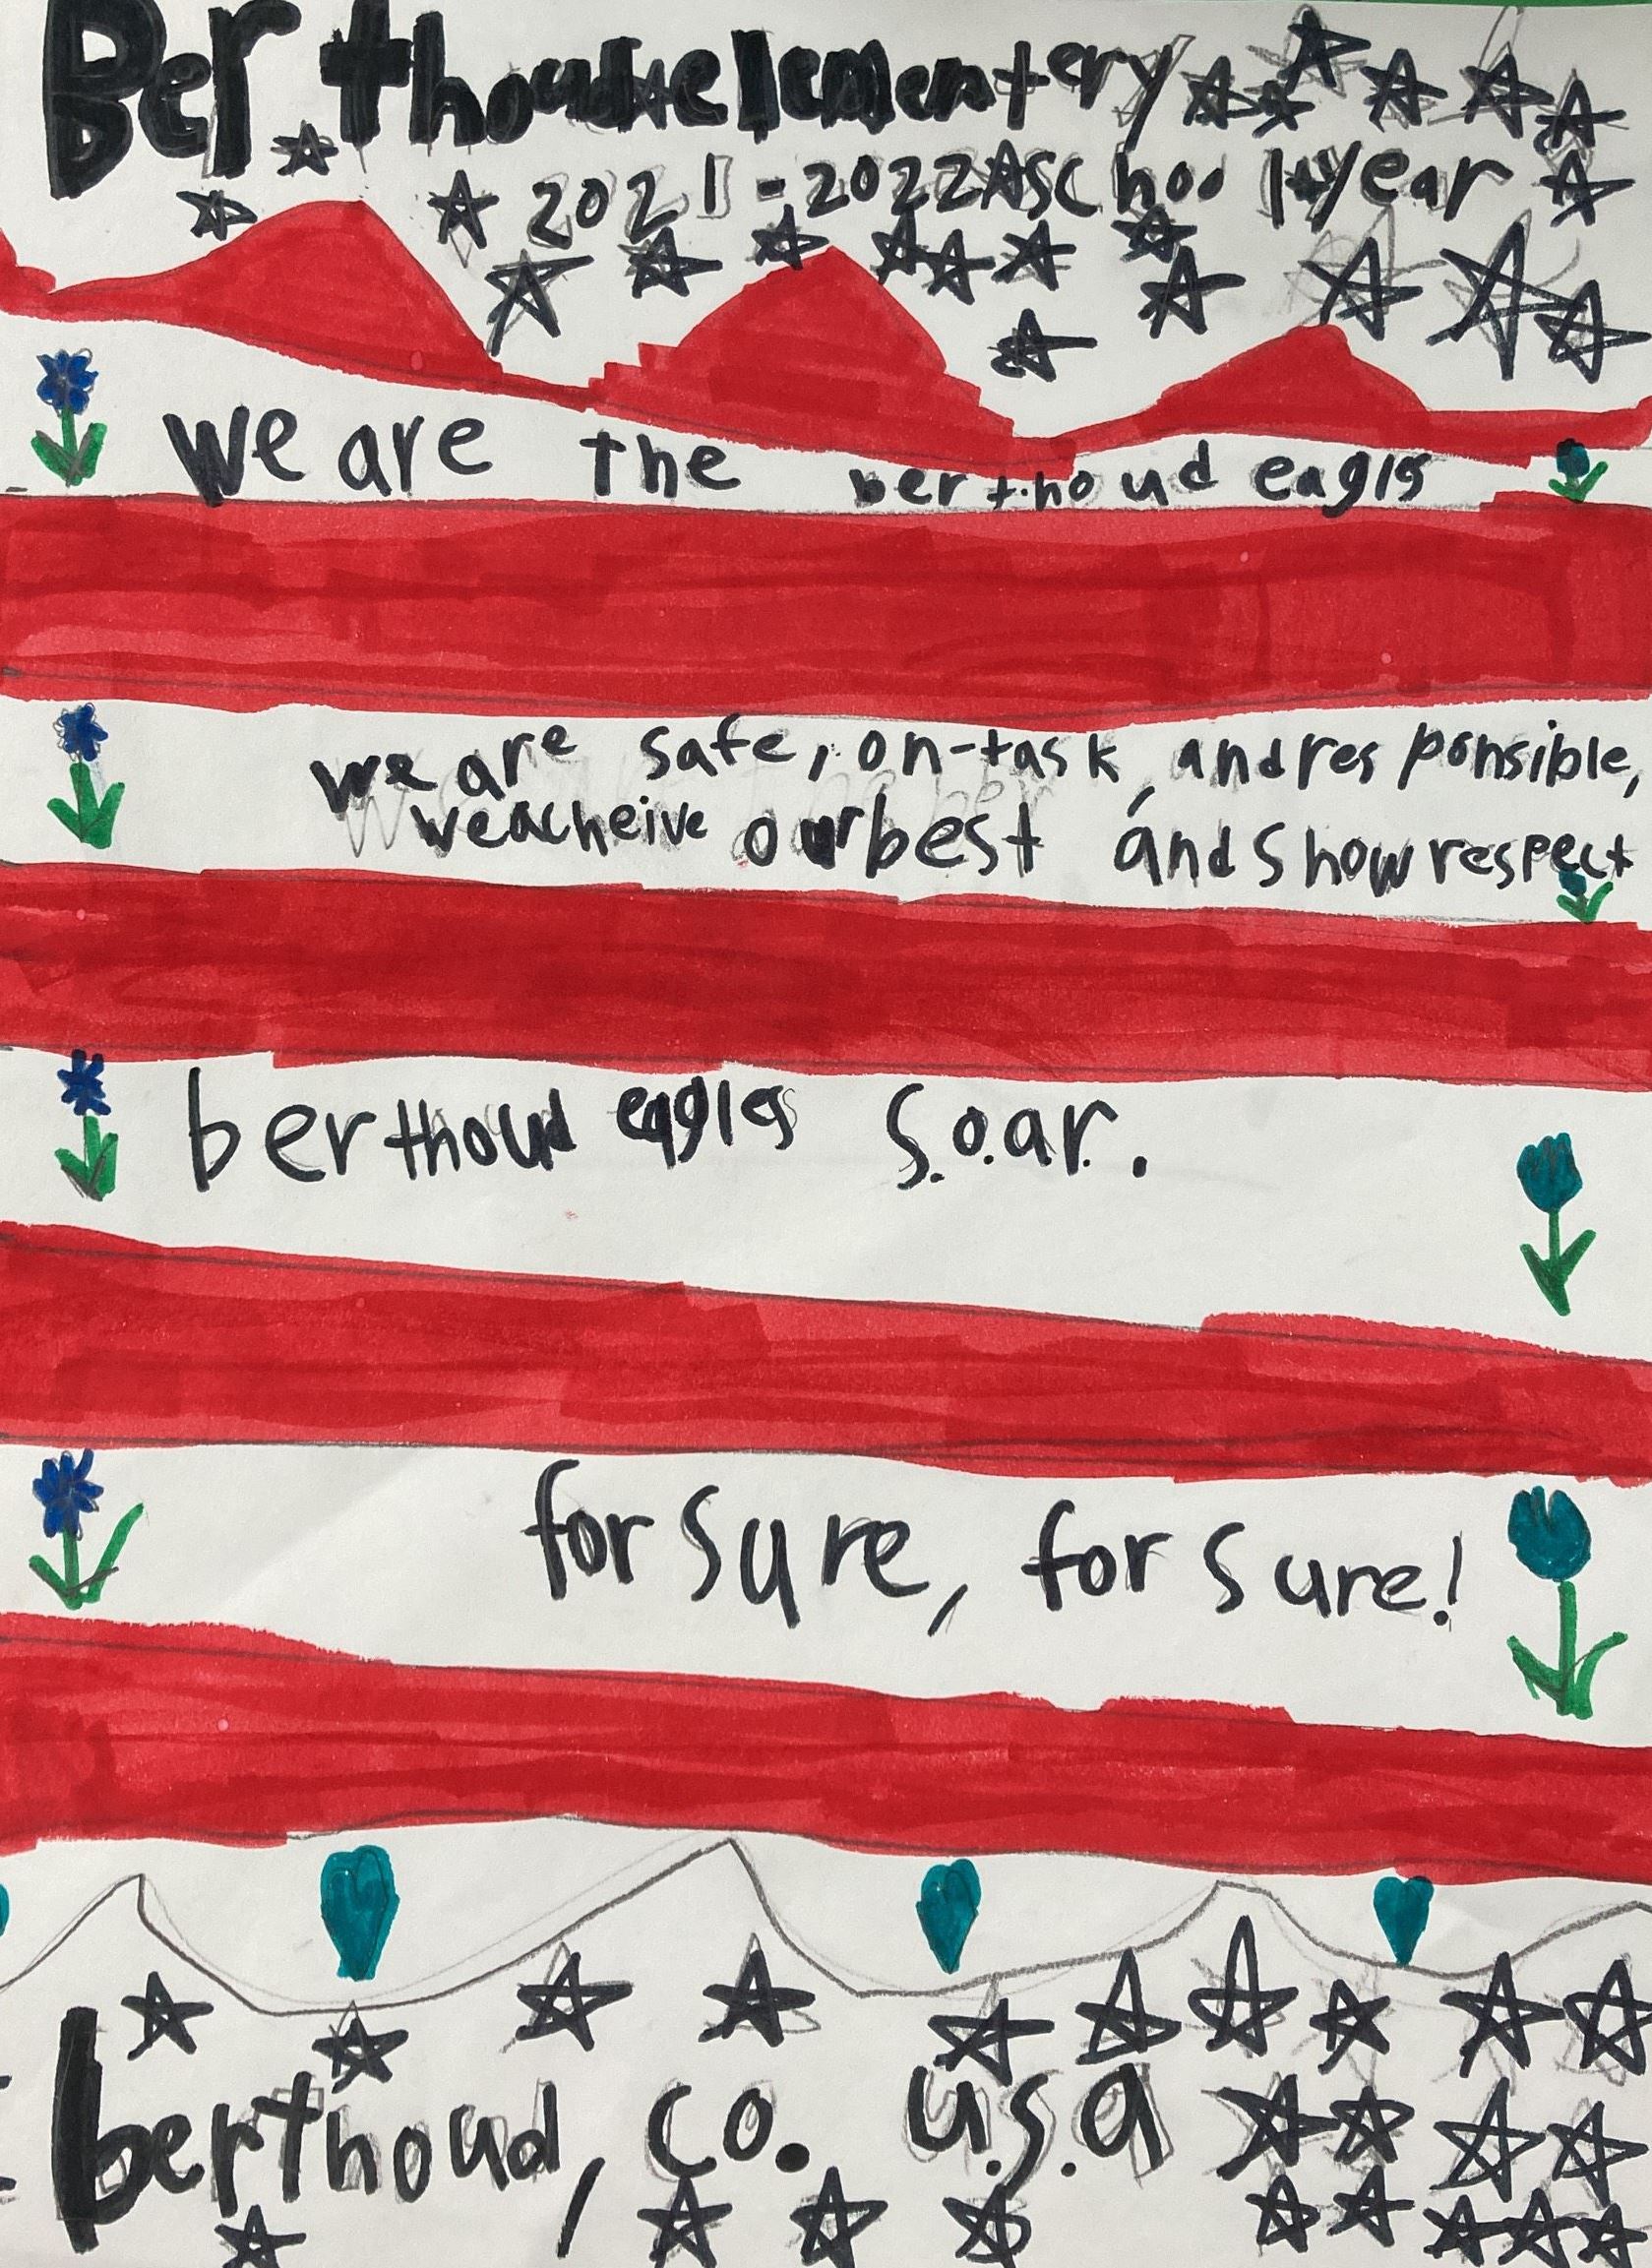 Berthoud elementery
2021-2022 School year
we are the berthoud eagls
we are safe, on-task, and responsible,
we acheive our best and show respect
berthoud eagles s.o.a.r.
for sure, for sure!
berthoud, co. u.s.a